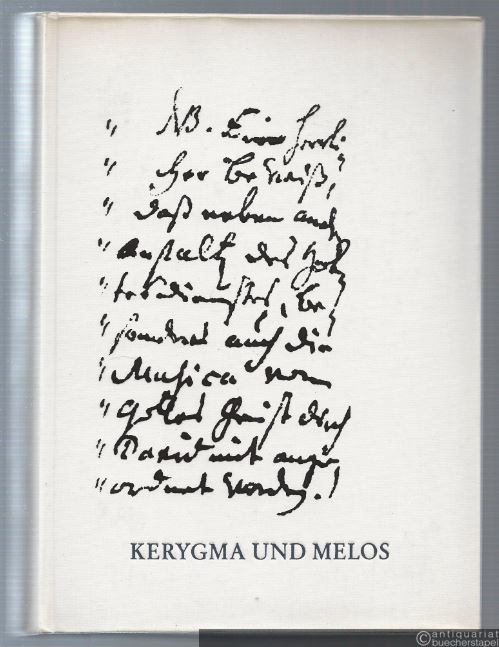 " NB. Ein herrli-
" cher Beweiß,
" daß neben andern
" anstalten des Got-
" tesdienstes, be-
" sonders auch die
" Musica von
" Gottes Geist durch
" David mit ange-
" ordnet worden.
KERYGMA UND MELOS
©antiquariat
buecherstapel